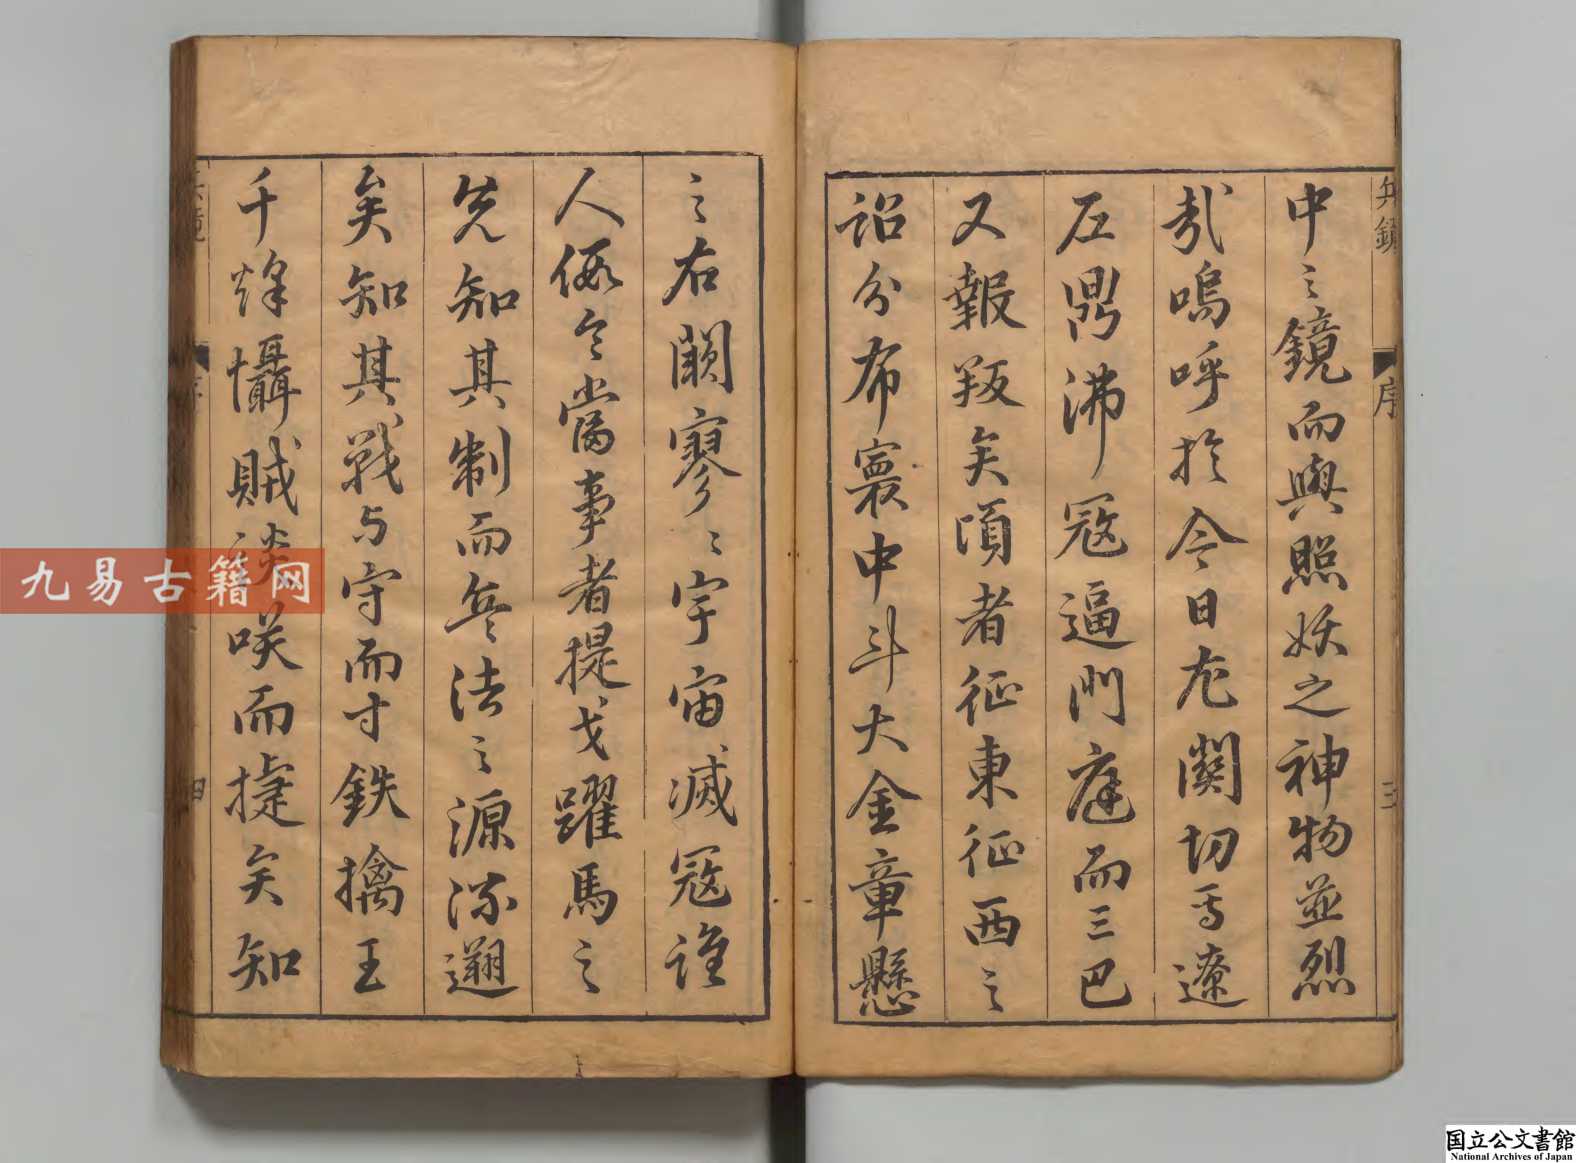 兵鏡
序
三
中之鏡而與照妖之神物並烈
哉嗚呼於今日尤關切焉遼
左鼎沸寇逼門庭而三巴
又報叛矣頃者征東征西之
詔分布寰中斗大金章懸
之右闕寥〻宇宙滅寇誰
人假令當事者提戈躍馬之
先知其制而兵法之源流遡
矣知其戰与守而寸鉄擒王
千烽懾賊談咲而捷矣知
兵鏡
序
四
九易古籍网
国立公文書館
National Archives of Japan